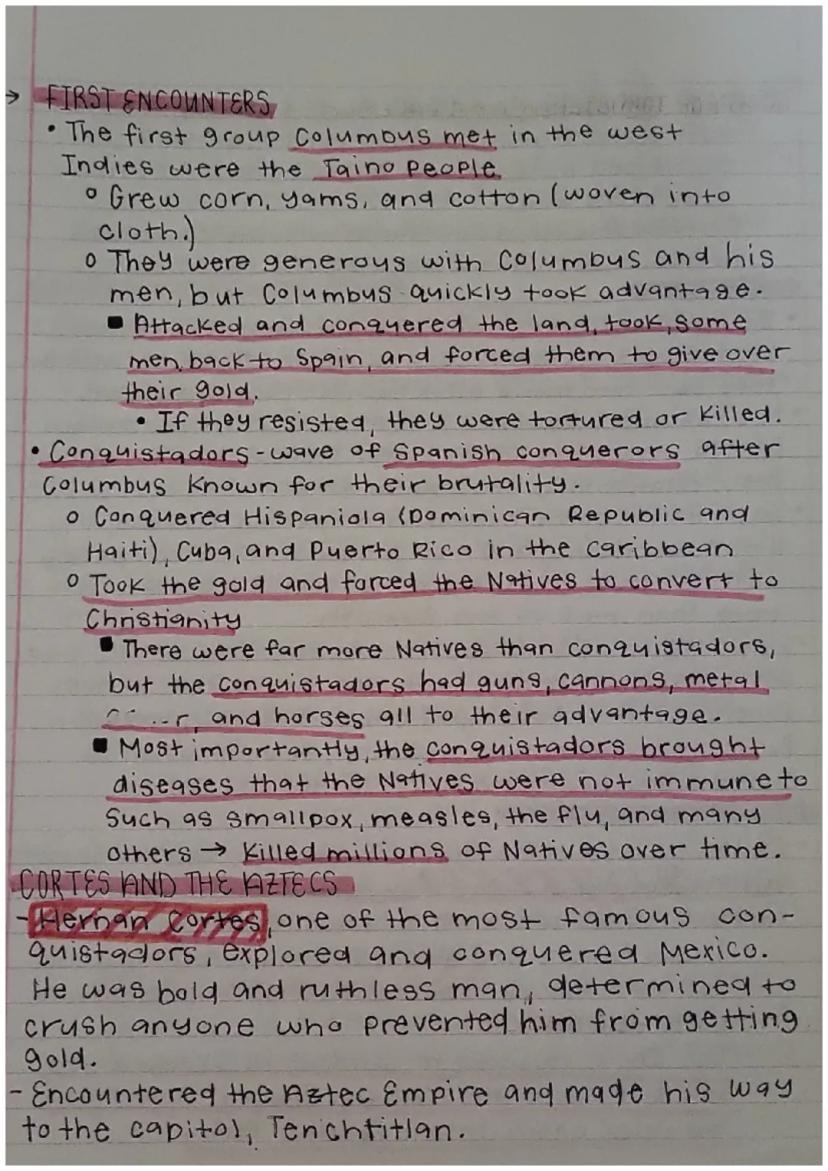 → FIRST ENCOUNTERS
• The first group Columbus met in the west
Indies were the Taino People
° Grew corn, yams, and cotton (woven into
cloth.)
° They were generous with Columbus and his
men, but Columbus quickly took advantage.
■ Attacked and conquered the land, took some
men back to Spain, and forced them to give over
their gold.
• If they resisted, they were tortured or killed.
• Conquistadors - wave of Spanish conquerors after
Columbus known for their brutality.
° Conquered Hispaniola (Dominican Republic and
Haiti), Cuba, and Puerto Rico in the Caribbean
° Took the gold and forced the Natives to convert to
Christianity
■ There were far more Natives than conquistadors,
but the conquistadors had guns, cannons, metal
and horses all to their advantage.
■ Most importantly, the conquistadors brought
diseases that the Natives were not immune to
such as smallpox, measles, the flu, and many
others → killed millions of Natives over time.
CORTES AND THE AZTECS
- Hernan Cortes, one of the most famous con-
quistadors, explored and conquered Mexico.
He was bold and ruthless man, determined to
crush anyone who prevented him from getting
gold.
- Encountered the Aztec Empire and made his way
to the capitol, Tenchtitlan.